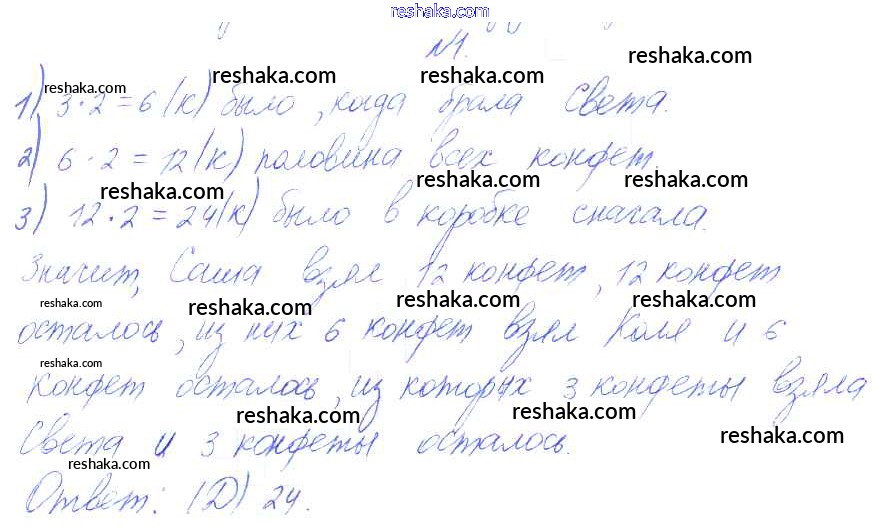 reshaka.com
№1.
reshaka.com reshaka.com reshaka.com reshaka.com
1) 3·2=6 (к) было, когда брала Света.
2) 6·2=12 (к) половина всех конфет.
reshaka.com reshaka.com reshaka.com
3) 12·2=24 (к) было в коробке сначала.
Значит, Саша взял 12 конфет, 12 конфет
reshaka.com reshaka.com reshaka.com reshaka.com
осталось, из них 6 конфет взял Коля и 6
reshaka.com
конфет осталось, из которых 3 конфеты взяла
reshaka.com reshaka.com reshaka.com
Света и 3 конфеты осталось.
reshaka.com
Ответ: (D) 24.